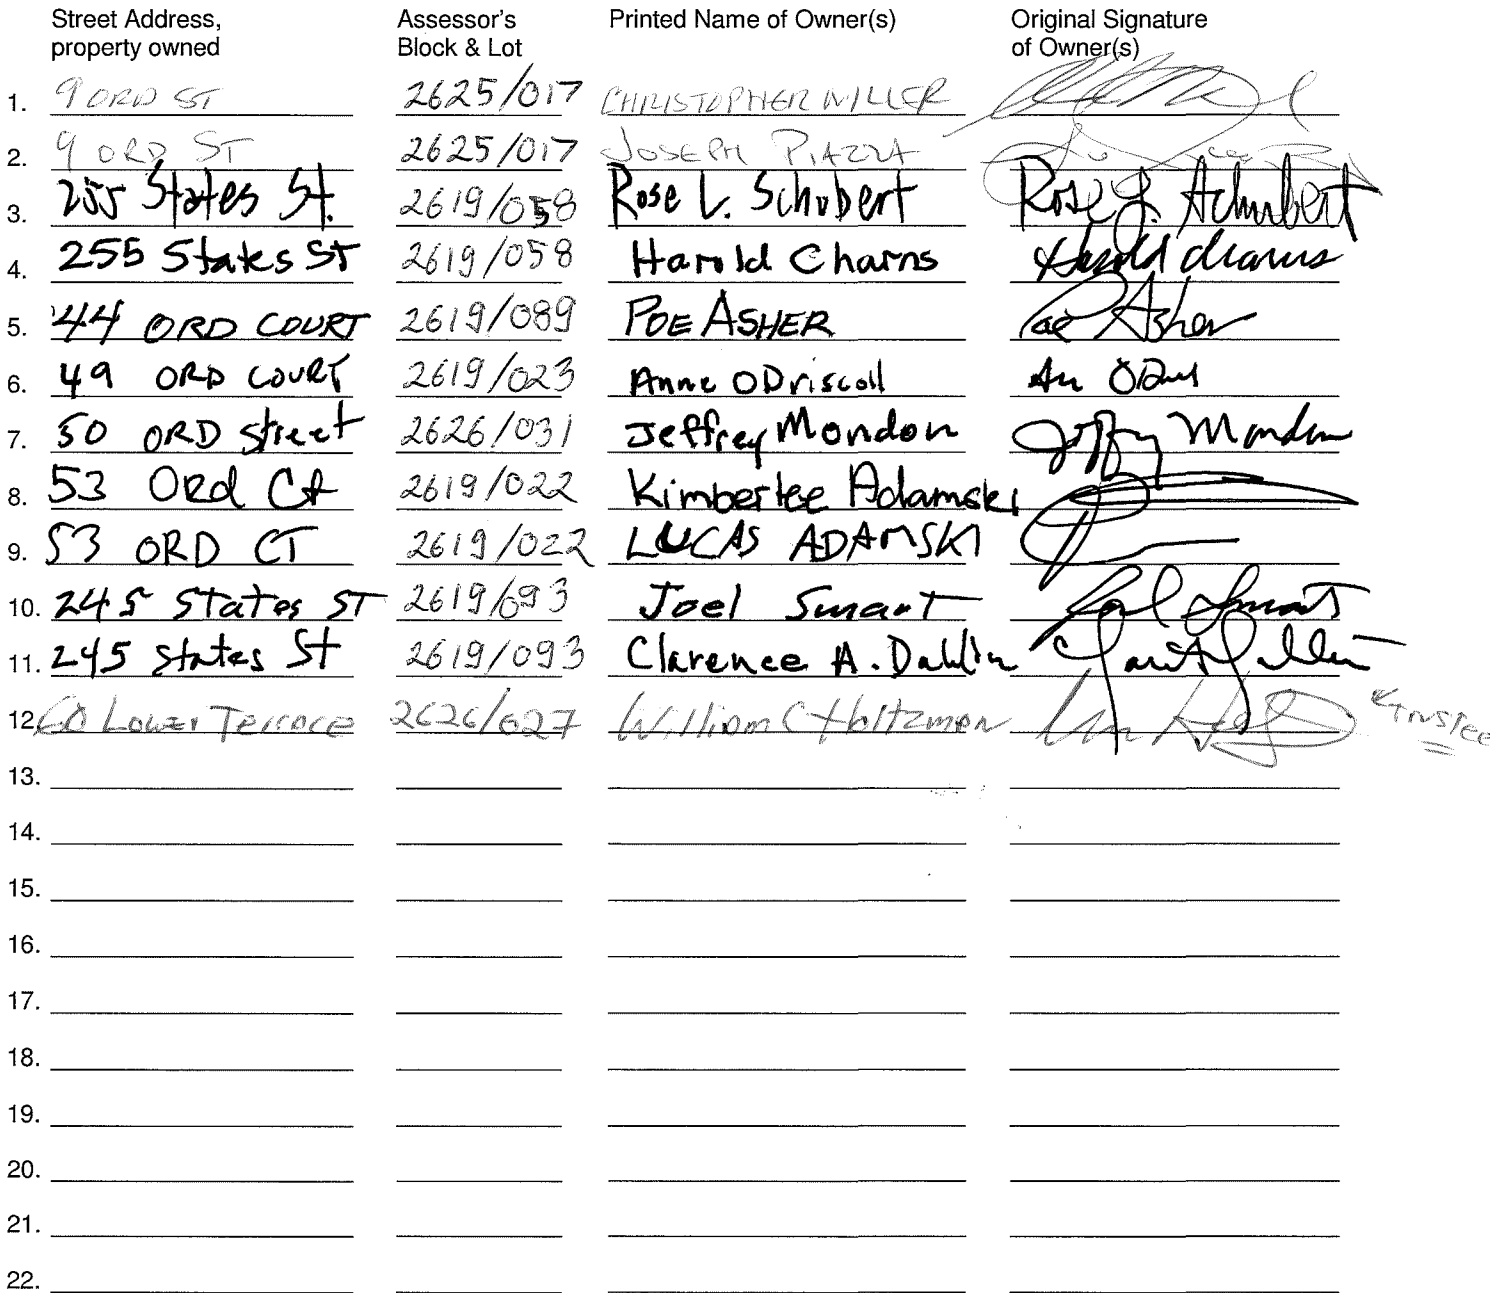 Street Address, property owned Assessor's Block & Lot Printed Name of Owner(s) Original Signature of Owner(s)
1. 9 ORD ST 2625/017 CHRISTOPHER MILLER
2. 9 ORD ST 2625/017 JOSEPH PIAZZA
3. 255 States St. 2619/058 Rose L. Schubert Rose L. Schubert
4. 255 States ST 2619/058 Harold Charns Harold Charns
5. 44 ORD COURT 2619/089 POE ASHER Poe Asher
6. 49 ORD COURT 2619/023 Anne ODriscoll
7. 50 ORD street 2626/031 Jeffrey Mondon Jeffry Mondon
8. 53 Ord Ct 2619/022 Kimberlee Adamski
9. 53 ORD CT 2619/022 LUCAS ADAMSKI
10. 245 States ST 2619/093 Joel Smart Joel Smart
11. 245 States St 2619/093 Clarence A. Dahlin
12. 60 Lower Terrace 2626/027 William C Holtzman Trustee
13.
14.
15.
16.
17.
18.
19.
20.
21.
22.